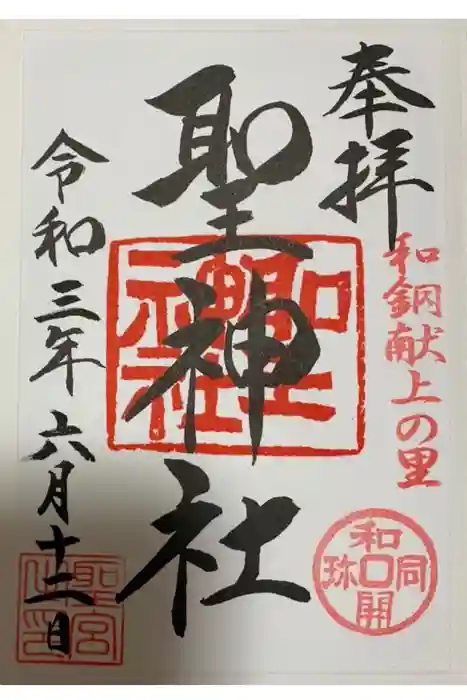 奉拝
和銅献上の里
聖神社
令和三年六月十二日
聖神社
和同開珎
聖宮